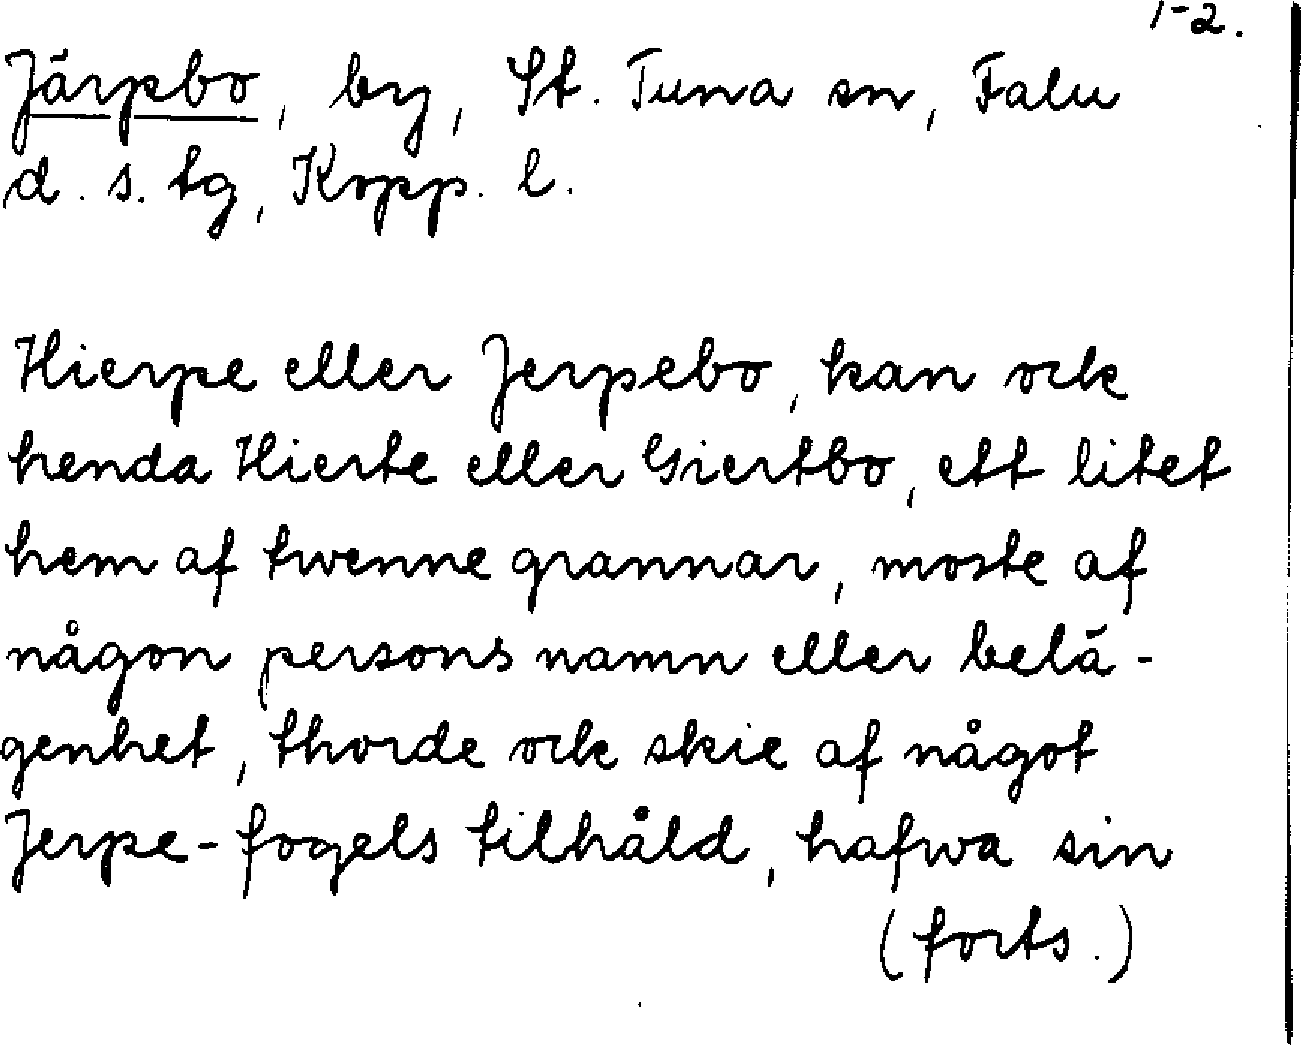 1-2.
Järpbo, by, St. Tuna sn, Falu
d. s. tg, Kopp. l.
Hierpe eller Jerpebo, kan ock
henda Hierte eller Giertbo, ett litet
hem af twenne grannar, moste af
någon persons namn eller belä-
genhet, thorde ock skie af något
Jerpe-fogels tilhåld, hafwa sin
(forts.)